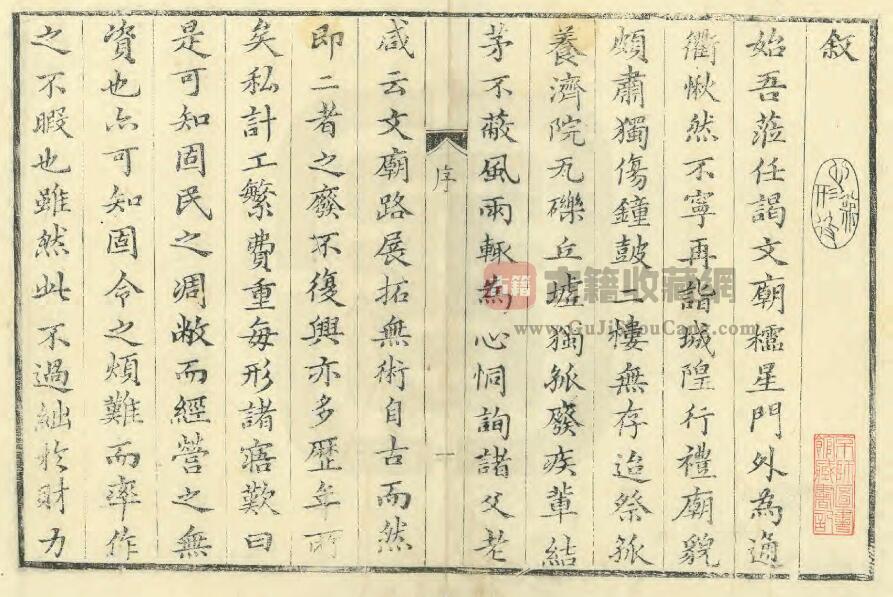 敘
始吾蒞任謁文廟櫺星門外為通
衢愀然不寧再詣城隍行禮廟貌
頗肅獨傷鐘鼓二樓無存迨祭孤
養濟院瓦礫丘墟獨孤廢疾輩結
茅不蔽風雨輒為心恫詢諸父老
咸云文廟路展拓無術自古而然
即二者之廢不復興亦多歷年所
矣私計工繁費重每形諸寤歎曰
是可知固民之凋敝而經營之無
資也亦可知固令之煩難而率作
之不暇也雖然此不過絀於財力
序
一
古籍收藏網
www.GuJiShouCang.com